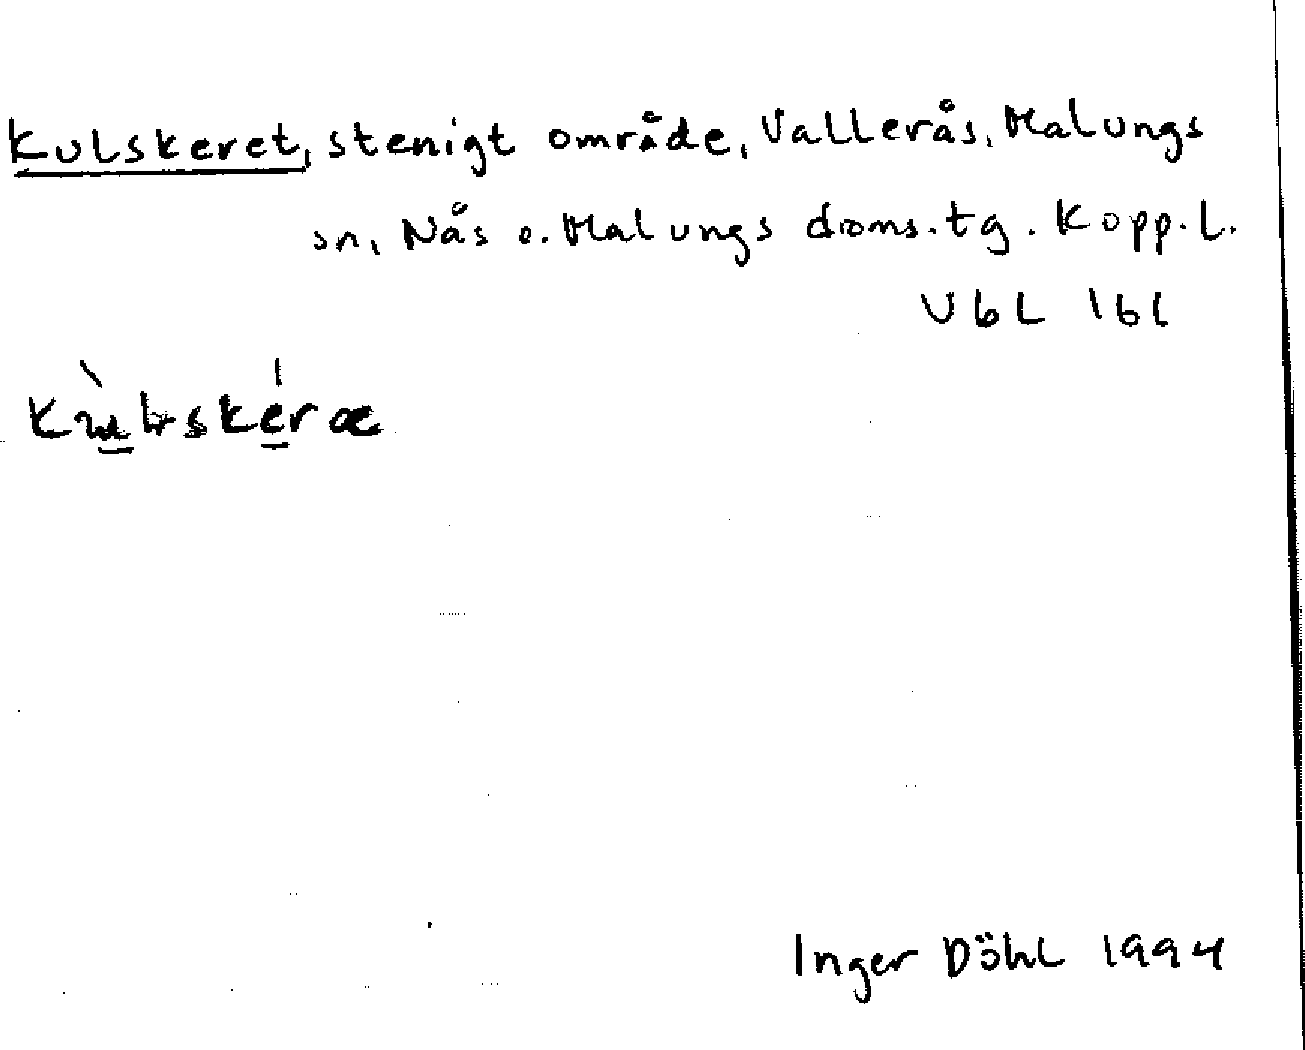 Kulskeret, stenigt område, Vallerås, Malungs
sn, Nås o. Malungs doms.tg. Kopp.l.
Inger Döhl 1994